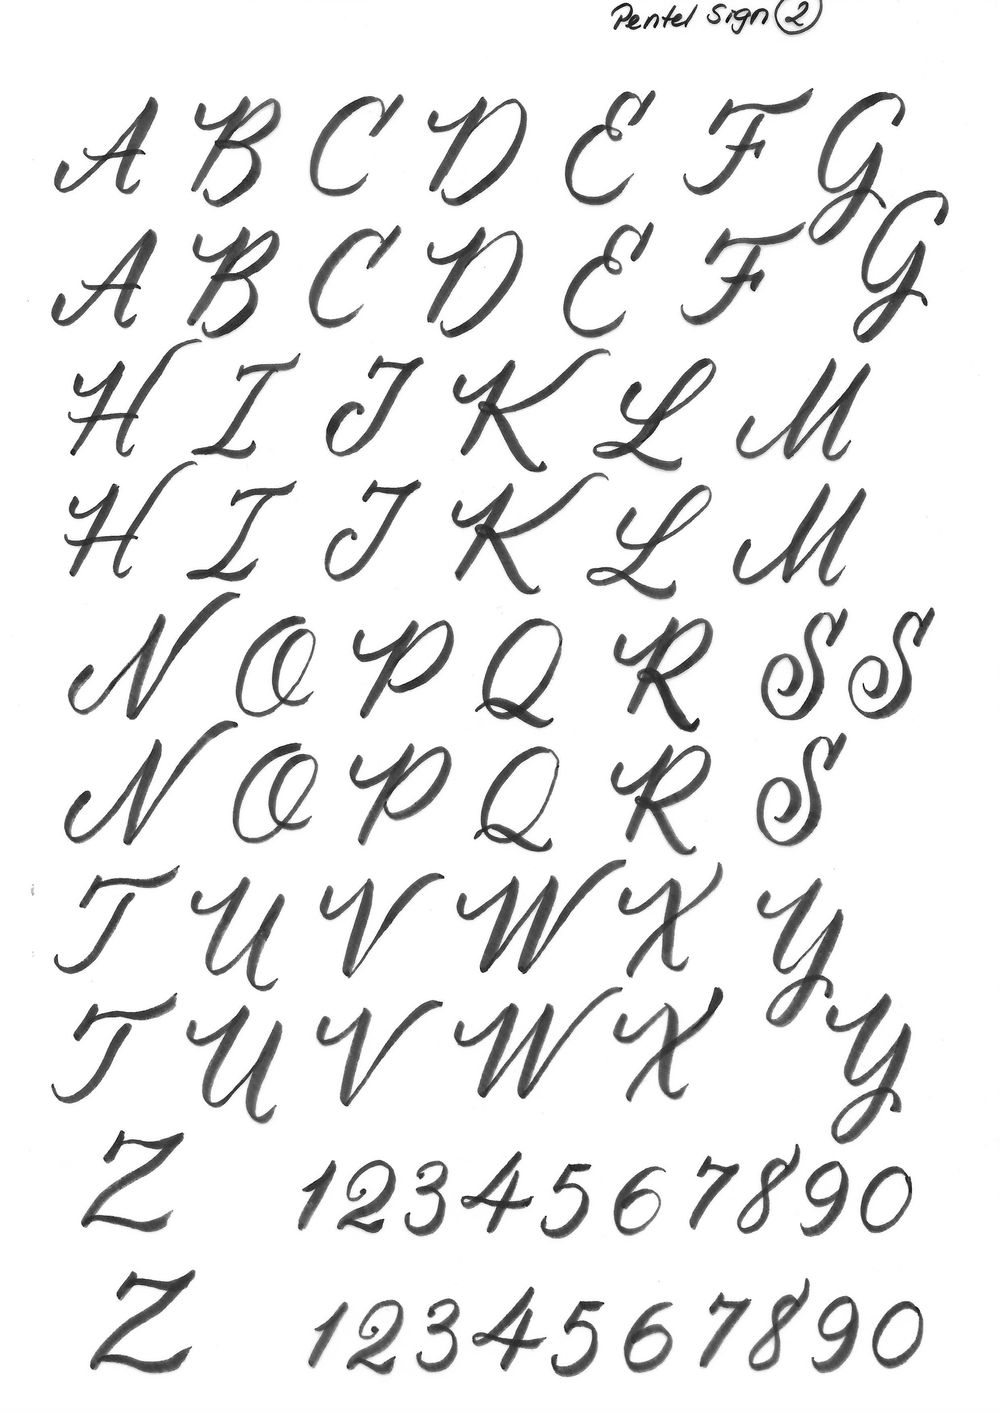 Pentel Sign 2
A B C D E F G
A B C D E F G
H I J K L M
H I J K L M
N O P Q R S S
N O P Q R S
T U V W X Y
T U V W X Y
Z 1234567890
Z 1234567890